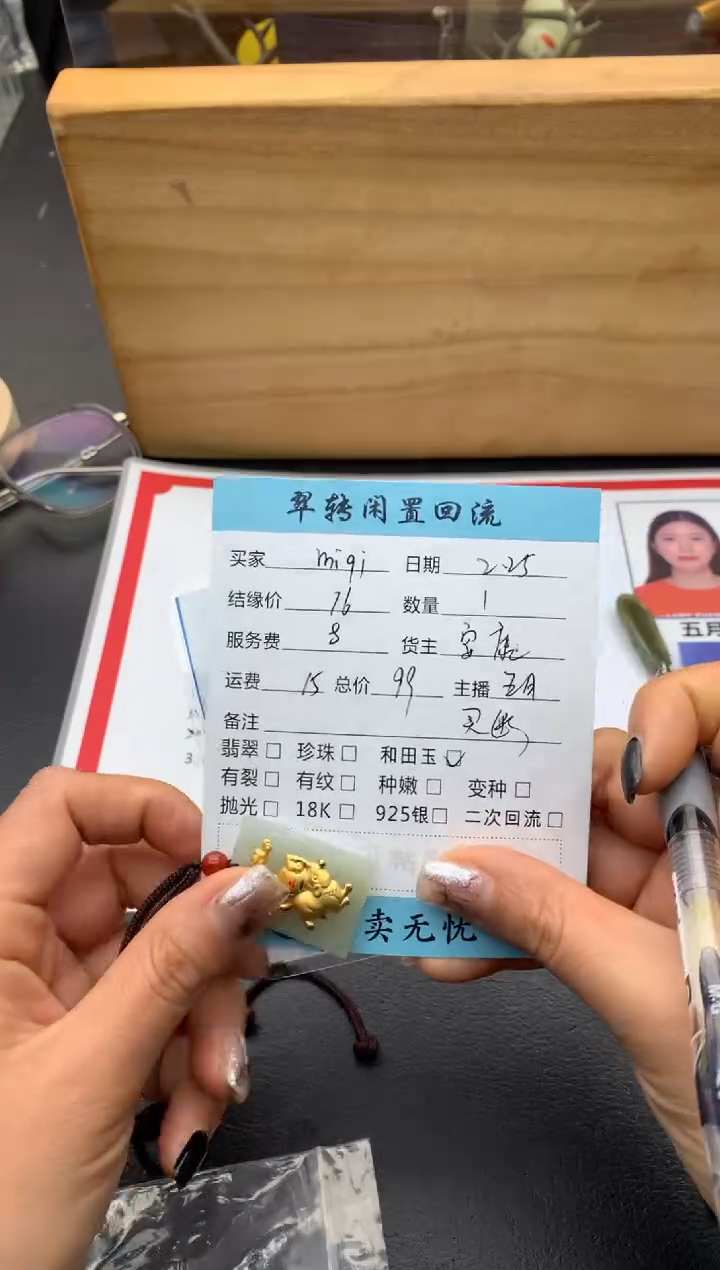 翠转闲置回流
买家 miqi 日期 2.25
结缘价 76 数量 1
服务费 8 货主 安康
运费 15 总价 99 主播 五月
备注 买断
翡翠□ 珍珠□ 和田玉☑
有裂□ 有纹□ 种嫩□ 变种□
抛光□ 18K□ 925银□ 二次回流□
卖无忧
五月
3.